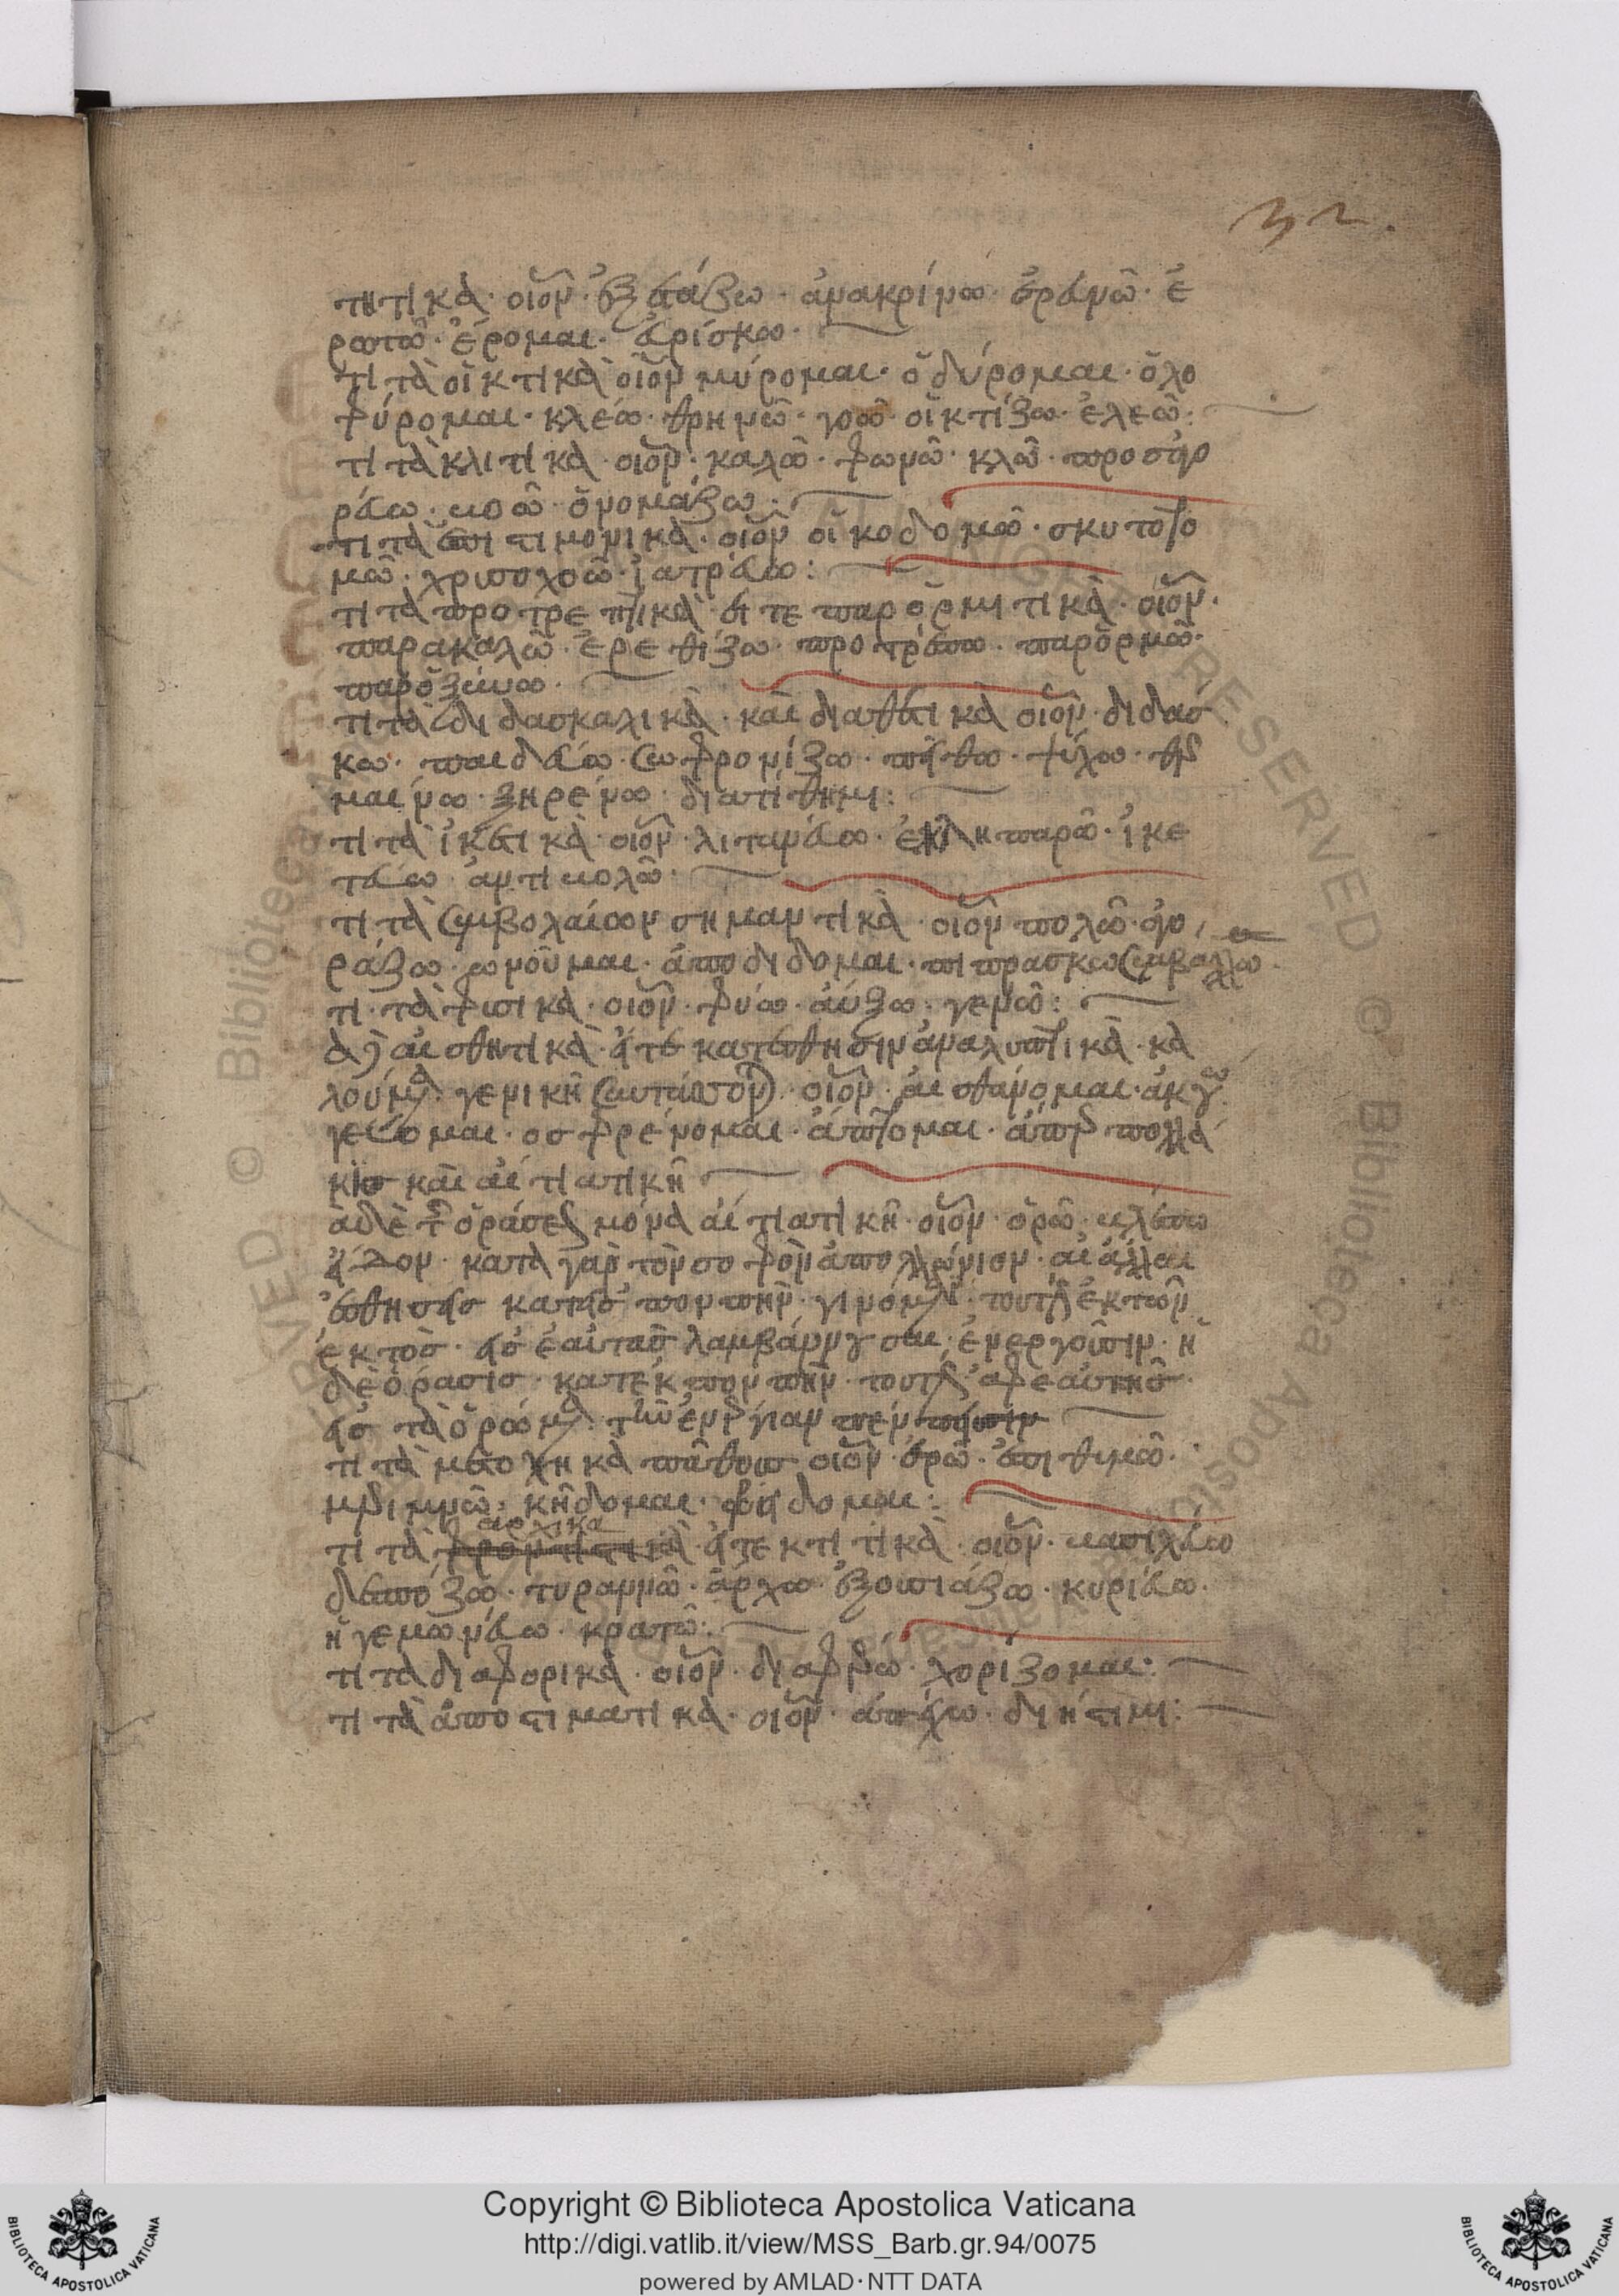 32.
τητικὰ· οἷον· ἐξετάζω· ἀνακρίνω· ἐρευνῶ· ἐ
ρωτῶ· ἔρομαι· εὑρίσκω·
τι τὰ οἰκτικὰ οἷον μύρομαι· ὀδύρομαι· ὀλο
φύρομαι· κλέω· θρηνῶ· γοῶ· οἰκτίζω· ἐλεῶ:
τι τὰ κλιτικὰ· οἷον· καλῶ· φωνῶ· κλῶ· προσαγο
ρεύω· βοῶ· ὀνομάζω:
τι τὰ ἐπιστιμονικὰ· οἷον οἰκοδομῶ· σκυτοτο
μῶ· χρυσοχοῶ· ἰατρεύω:
τι τὰ προτρεπτικὰ· εἴτε παρορμητικὰ· οἷον·
παρακαλῶ· ἐρεθίζω· προτρέπω· παρορμῶ·
παροξύνω·
τι τὰ διδασκαλικὰ· καὶ διαθετικὰ οἷον· διδάσ
κω· παιδεύω· σωφρονίζω· πείθω· ψύχω· θερ
μαίνω· ξηρένω· διατίθημι:
τι τὰ ἱκετικὰ· οἷον· λιτανεύω· ἐκλιπαρῶ· ἱκε
τεύω· ἀντιβολῶ·
τι τὰ συμβολαίων σημαντικὰ· οἷον πολῶ· ἀγο
ράζω· ὠνοῦμαι· ἀποδίδομαι· πιπράσκω συμβάλλω·
τι· τὰ φυσικὰ· οἷον· φύω· αὔξω· γεννῶ:
τὰ αἰσθητικὰ· κα
λούμενα· γενικῇ συντάσσονται· οἷον· αἰσθάνομαι· ἀκούω
γεύομαι· οσφρένομαι· ἅπτομαι· ἅπερ πολλά
κις καὶ αἰτιατικῇ
αἱ δὲ τῆς ὁράσεως μόνα αἰτιατικῇ· οἷον· ὁρῶ· βλέπω
εἶδον· κατὰ γὰρ τὸν σοφὸν ἀπολλώνιον· αἱ ἄλλαι
ἐκτὸς· εἰς ἑαυτὰς λαμβάνουσαι· ἐνεργοῦσιν· ἡ
δὲ ὅρασις· κατ' ἐκπομπὴν· τουτέστιν ἀφ' ἑαυτῆς·
εἰς τὰ ὁρώμενα· τὴν ἐνέργειαν πέμπουσιν
οἷον· ἐρῶ· ἐπιθυμῶ·
μεριμνῶ· κήδομαι· φείδομαι:
ἀρχικὰ
οἷον· βασιλεύω
δεσπόζω· τυραννῶ· ἄρχω· ἐξουσιάζω· κυριεύω·
ἡγεμωνεύω· κρατῶ:
τι τὰ διαφορικὰ· οἷον· διαφέρω· χορίζομαι:
τι τὰ ἀποστιματικὰ· οἷον· ἀπέχω· διήστιμι:
Copyright © Biblioteca Apostolica Vaticana
http://digi.vatlib.it/view/MSS_Barb.gr.94/0075
powered by AMLAD·NTT DATA
BIBLIOTECA APOSTOLICA VATICANA
BIBLIOTECA APOSTOLICA VATICANA